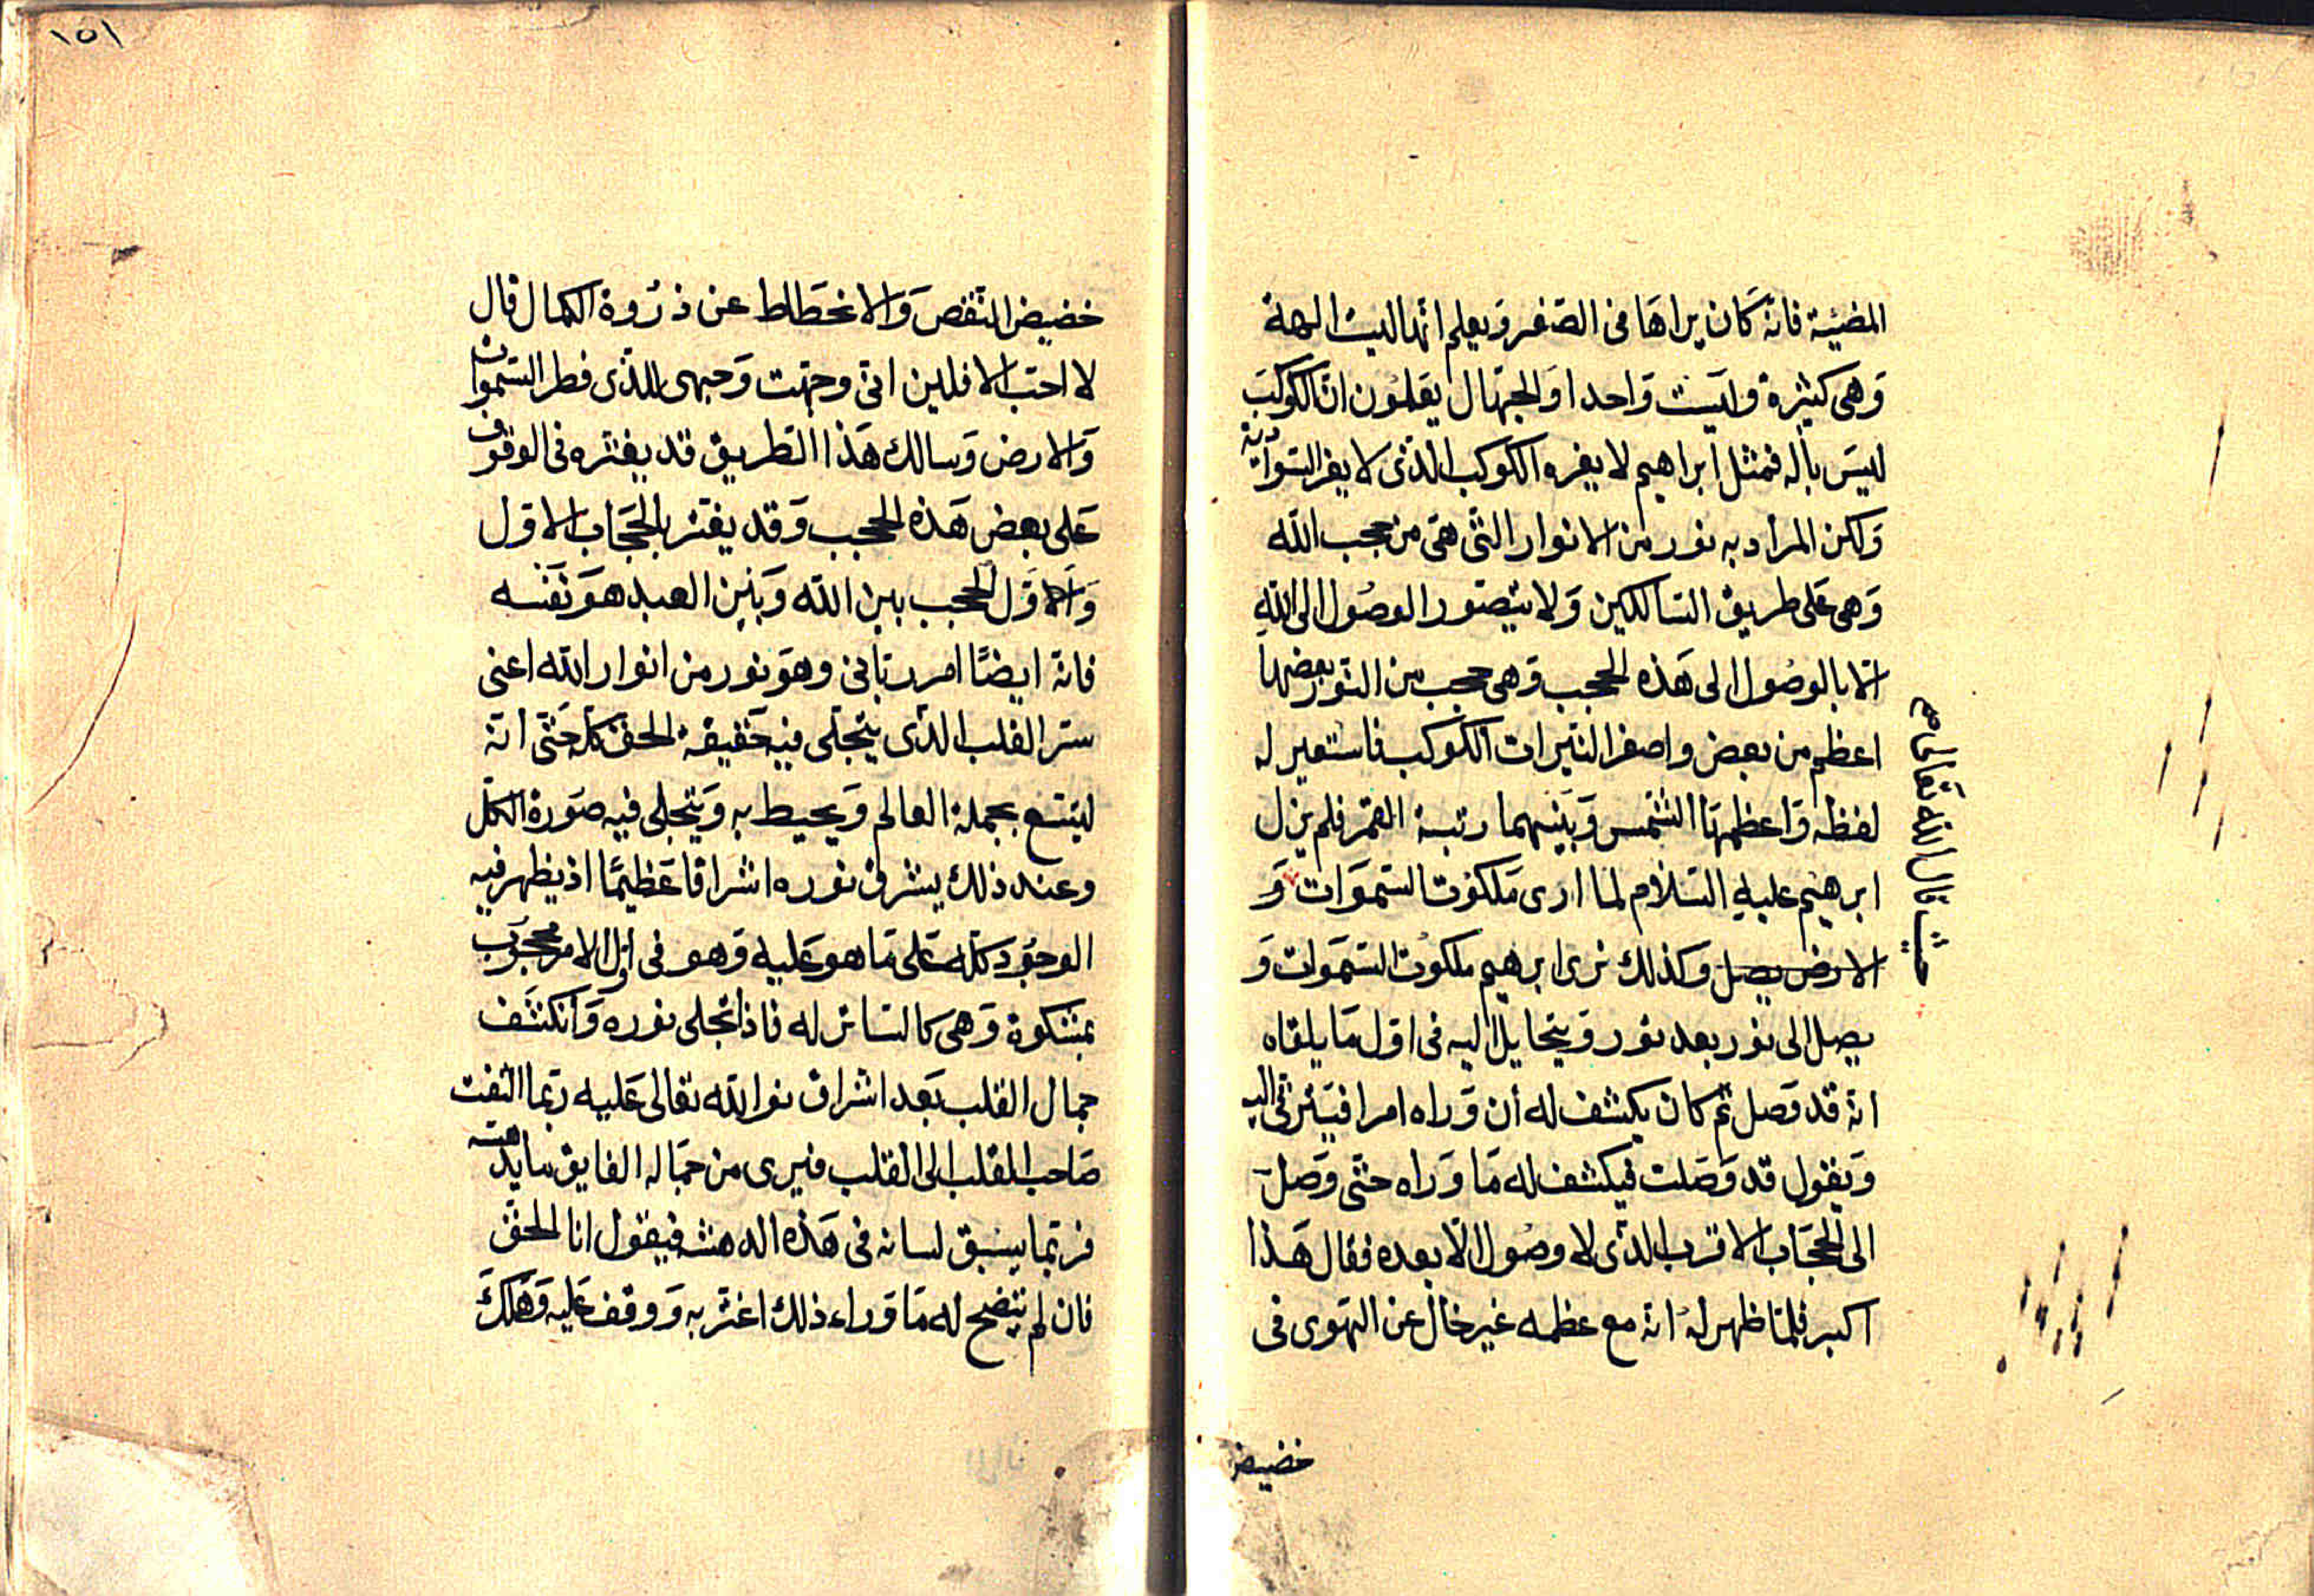 المضيئة فانه كان يراها فى الصغر ويعلم انها ليست الهة
وهى كثيرة وليست واحدا والجهال يعلمون ان الكوكب
ليس باله فمثل ابراهيم لا يغره الكوكب الذى لا يغر السوادية
ولكن المراد به نور من الانوار التى هى من حجب الله
وهى على طريق السالكين ولا يتصور الوصول الى الله
الا بالوصول الى هذه الحجب وهى حجب من النور بعضها
اعظم من بعض واصغر النيرات الكوكب فاستعير له
لفظه واعظمها الشمس وبينهما رتبة القمر فلم يزل
ابرهيم عليه السلام لما ارى ملكوت السموات و
الارض يصل وكذلك نرى ابرهيم ملكوت السموات و
يصل الى نور بعد نور ويتخايل اليه فى اول ما يلقاه
انه قد وصل ثم كان يكشف له أن وراه امرا فيترقى اليه
ويقول قد وصلت فيكشف له ما وراه حتى وصل
الى الحجاب الاقرب الذى لا وصول الا بعده فقال هذا
اكبر فلما ظهر له انه مع عظمه غير خال عن الهوى فى
خضيض
حيث قال الله تعالى
١٥١
خضيض النقص والانحطاط عن ذروة الكمال قال
لا احب الافلين انى وجهت وجهى للذى فطر السموات
والارض وسالك هذا الطريق قد يغتره فى الوقوف
على بعض هذه الحجب وقد يغتر بالحجاب الاول
والاول الحجب بين الله وبين العبد هو نفسه
فانه ايضًا امر ربانى وهو نور من انوار الله اعنى
سر القلب الذى يتجلى فيه حقيقة الحق كله حتى أنه
ليتسع بجملة العالم ويحيط به ويتجلى فيه صورة الكل
وعند ذلك يشرق نوره اشراقا عظيمًا اذ يظهر فيه
الوجود كله على ما هو عليه وهو فى اول الامر محجوب
بمشكوة وهى كالساتر له فاذا تجلى نوره وانكشف
جمال القلب بعد اشراق نور الله تعالى عليه ربما التفت
صاحب القلب الى القلب فيرى من جماله الفايق ما يدهشه
فربما يسبق لسانه فى هذه الدهشه فيقول انا الحق
فان لم يتضح له ما وراء ذلك اغتر به ووقف عليه وهلك